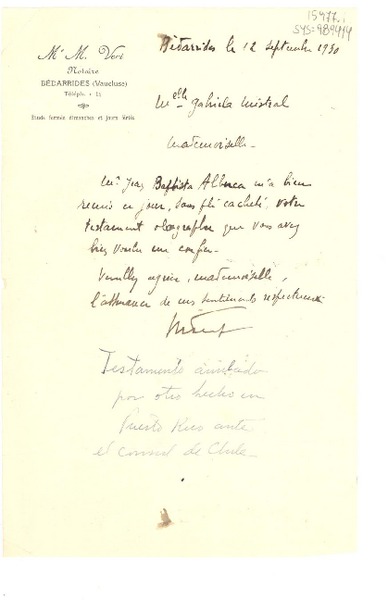 15977
SYS: 989414
Me M. Veve
Notaire
BÉDARRIDES (Vaucluse)
Téléph. n 15
Etude fermée dimanches et jours fériés
Bédarrides le 12 septembre 1930
Melle Gabriela Mistral
Mademoiselle
Mr Jean Baptista Alberca m'a bien
remis ce jour, sous pli cacheté, votre
testament olographe que vous avez
bien voulu me confier.
Veuillez agréer, Mademoiselle,
l'assurance de mes sentiments respectueux
Testamento anulado
por otro hecho en
Puerto Rico ante
el consul de Chile